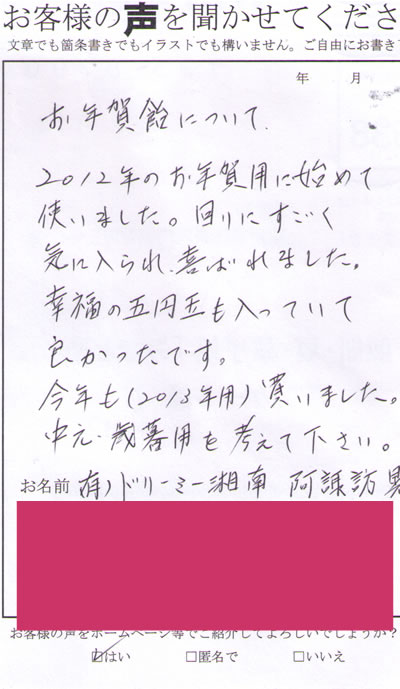 お客様の声を聞かせてくださ
文章でも箇条書きでもイラストでも構いません。ご自由にお書き下
年　月
お年賀飴について
2012年のお年賀用に始めて
使いました。回りにすごく
気に入られ、喜ばれました。
幸福の五円玉も入っていて
良かったです。
今年も(2013年用)買いました。
中元・歳暮用も考えて下さい。
お名前 有)ドリーミー湘南 阿諏訪
お客様の声をホームページ等でご紹介してよろしいでしょうか?
☑はい　□匿名で　□いいえ